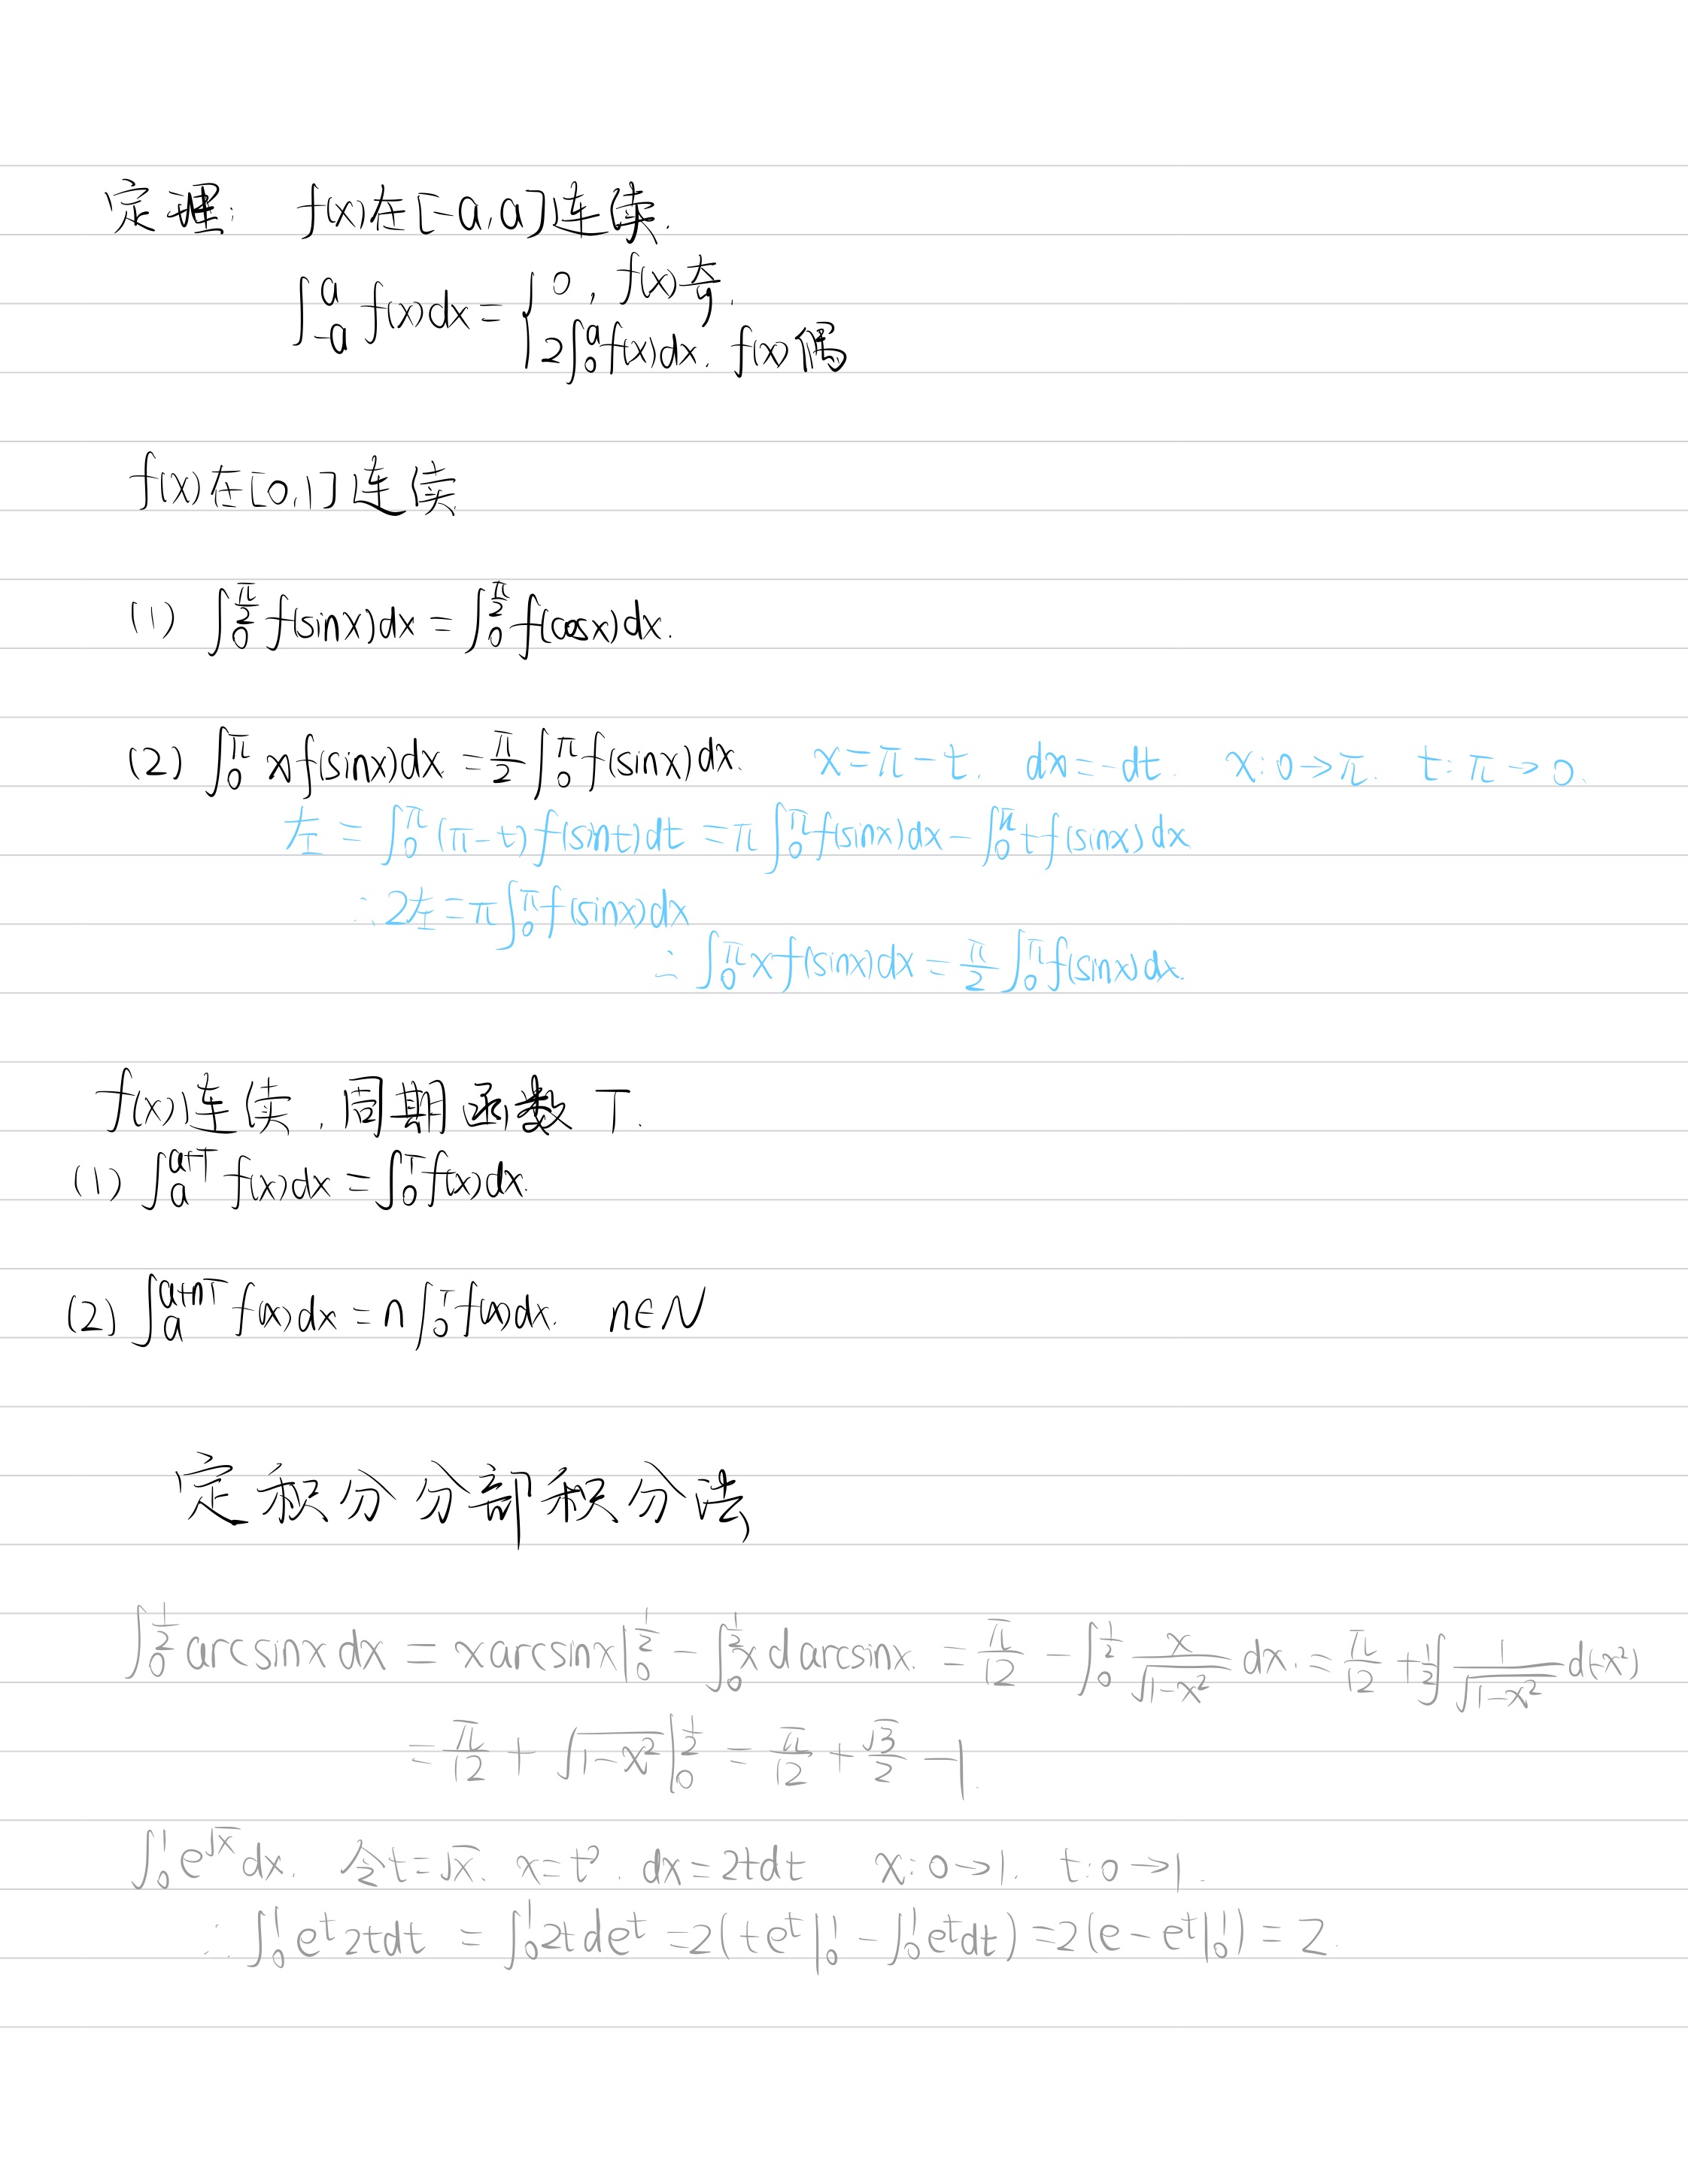 定理: f(x)在[-a,a]连续.
∫_{-a}^{a} f(x)dx = { 0, f(x)奇.
2∫_0^a f(x)dx. f(x)偶
f(x)在[0,1]连续.
(1) ∫_0^{π/2} f(sinx)dx = ∫_0^{π/2} f(cosx)dx.
(2) ∫_0^π xf(sinx)dx = π/2 ∫_0^π f(sinx)dx. x=π-t. dx=-dt. x:0→π. t:π→0.
左 = ∫_0^π (π-t)f(sint)dt = π∫_0^π f(sinx)dx - ∫_0^π tf(sinx)dx
∴2左=π∫_0^π f(sinx)dx
∴ ∫_0^π xf(sinx)dx = π/2 ∫_0^π f(sinx)dx.
f(x)连续,周期函数 T.
(1) ∫_a^{a+T} f(x)dx = ∫_0^T f(x)dx.
(2) ∫_a^{a+nT} f(x)dx = n∫_0^T f(x)dx. n∈N
定积分分部积分法
∫_0^{1/2} arcsinx dx = xarcsinx|_0^{1/2} - ∫_0^{1/2} x d arcsinx. = π/12 - ∫_0^{1/2} x/√(1-x²) dx. = π/12 + 1/2 ∫ 1/√(1-x²) d(-x²)
= π/12 + √(1-x²)|_0^{1/2} = π/12 + √3/2 - 1.
∫_0^1 e^{√x} dx. 令t=√x. x=t². dx=2tdt x:0→1. t:0→1.
∴ ∫_0^1 e^t 2tdt = ∫_0^1 2t de^t = 2(te^t|_0^1 - ∫_0^1 e^t dt) = 2(e - e^t|_0^1) = 2.